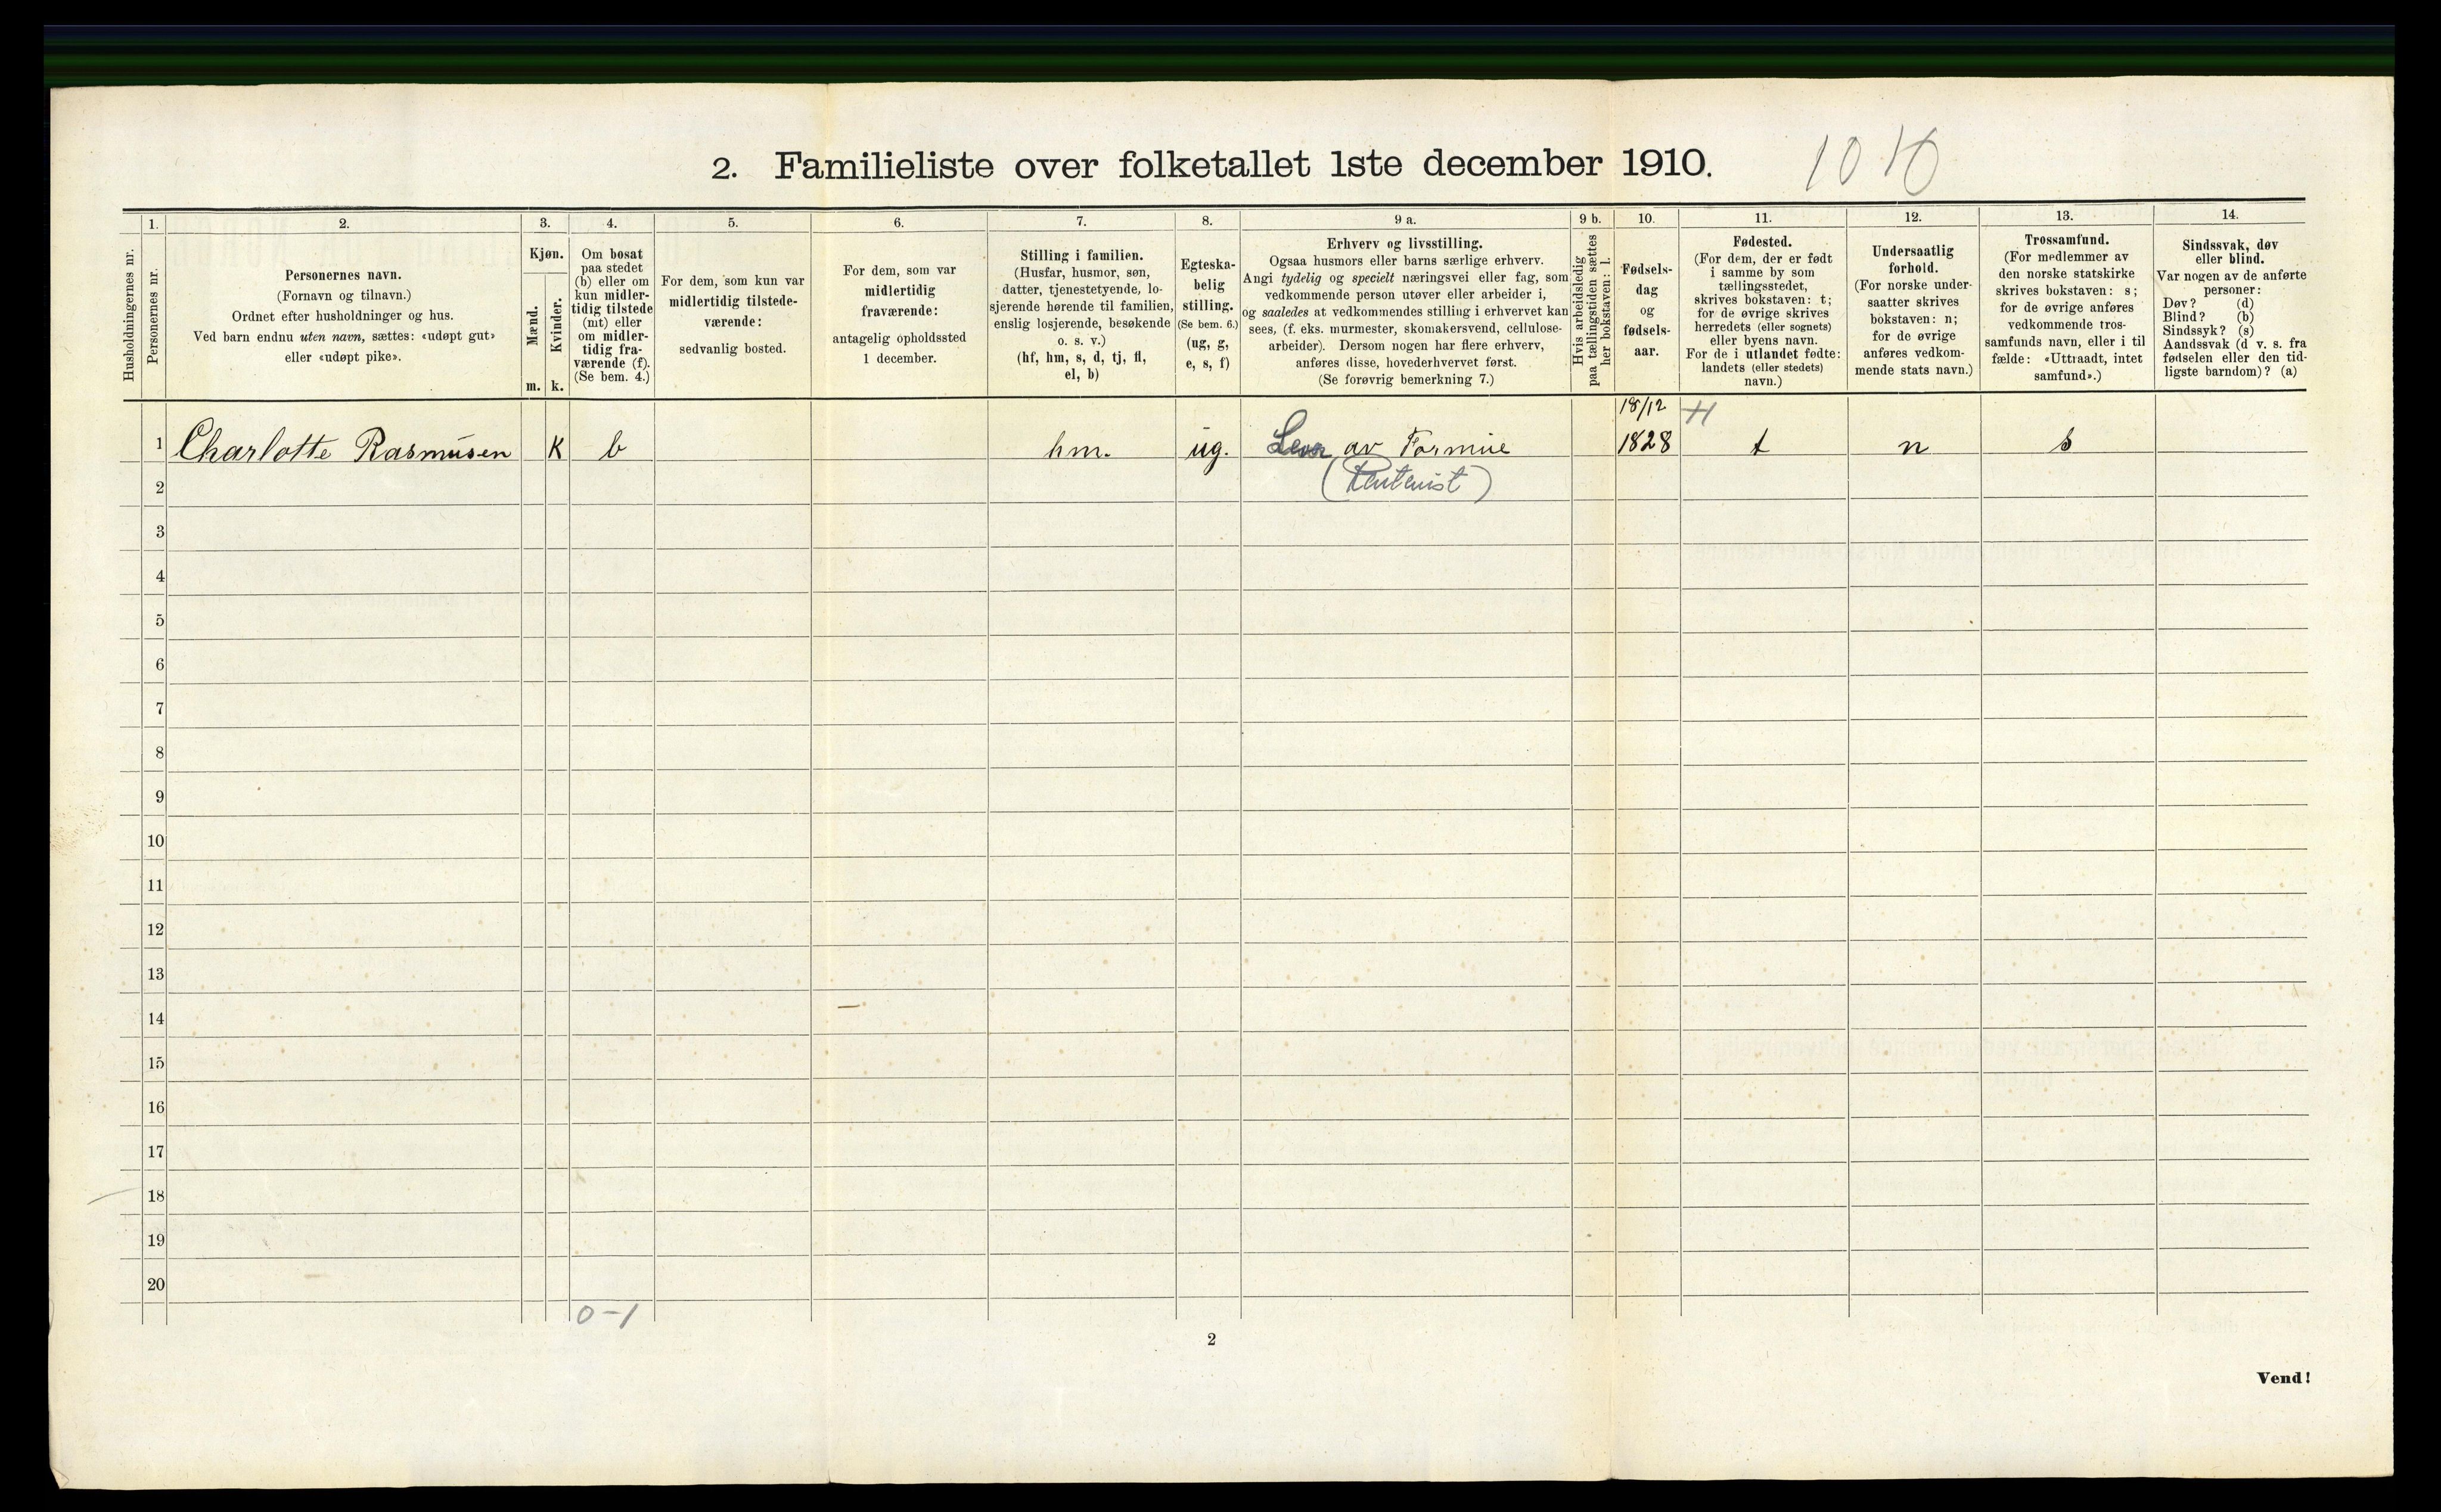 2. Familieliste over folketallet 1ste december 1910.
1. 2. 3. 4. 5. 6. 7. 8. 9 a. 9 b. 10. 11. 12. 13. 14.
Husholdningernes nr.
Personernes nr.
Personernes navn.
(Fornavn og tilnavn.)
Ordnet efter husholdninger og hus.
Ved barn endnu uten navn, sættes: «udøpt gut»
eller «udøpt pike».
Kjøn.
Mænd.
Kvinder.
m. k.
Om bosat
paa stedet
(b) eller om
kun midler-
tidig tilstede
(mt) eller
om midler-
tidig fra-
værende (f).
(Se bem. 4.)
For dem, som kun var
midlertidig tilstede-
værende:
sedvanlig bosted.
For dem, som var
midlertidig
fraværende:
antagelig opholdssted
1 december.
Stilling i familien.
(Husfar, husmor, søn,
datter, tjenestetyende, lo-
sjerende hørende til familien,
enslig losjerende, besøkende
o. s. v.)
(hf, hm, s, d, tj, fl,
el, b)
Egteska-
belig
stilling.
(Se bem. 6.)
(ug, g,
e, s, f)
Erhverv og livsstilling.
Ogsaa husmors eller barns særlige erhverv.
Angi tydelig og specielt næringsvei eller fag, som
vedkommende person utøver eller arbeider i,
og saaledes at vedkommendes stilling i erhvervet kan
sees, (f. eks. murmester, skomakersvend, cellulose-
arbeider). Dersom nogen har flere erhverv,
anføres disse, hovederhvervet først.
(Se forøvrig bemerkning 7.)
Hvis arbeidsledig
paa tællingstiden sættes
her bokstaven: l.
Fødsels-
dag
og
fødsels-
aar.
Fødested.
(For dem, der er født
i samme by som
tællingsstedet,
skrives bokstaven: t;
for de øvrige skrives
herredets (eller sognets)
eller byens navn.
For de i utlandet fødte:
landets (eller stedets)
navn.)
Undersaatlig
forhold.
(For norske under-
saatter skrives
bokstaven: n;
for de øvrige
anføres vedkom-
mende stats navn.)
Trossamfund.
(For medlemmer av
den norske statskirke
skrives bokstaven: s;
for de øvrige anføres
vedkommende tros-
samfunds navn, eller i til
fælde: «Uttraadt, intet
samfund».)
Sindssvak, døv
eller blind.
Var nogen av de anførte
personer:
Døv? (d)
Blind? (b)
Sindssyk? (s)
Aandssvak (d v. s. fra
fødselen eller den tid-
ligste barndom)? (a)
18/12
1 Charlotte Rasmusen K b hm. ug. Lever av Formue 1828 t n s
2 (Rentenist)
3
4
5
6
7
8
9
10
11
12
13
14
15
16
17
18
19
20
0-1
2
Vend!